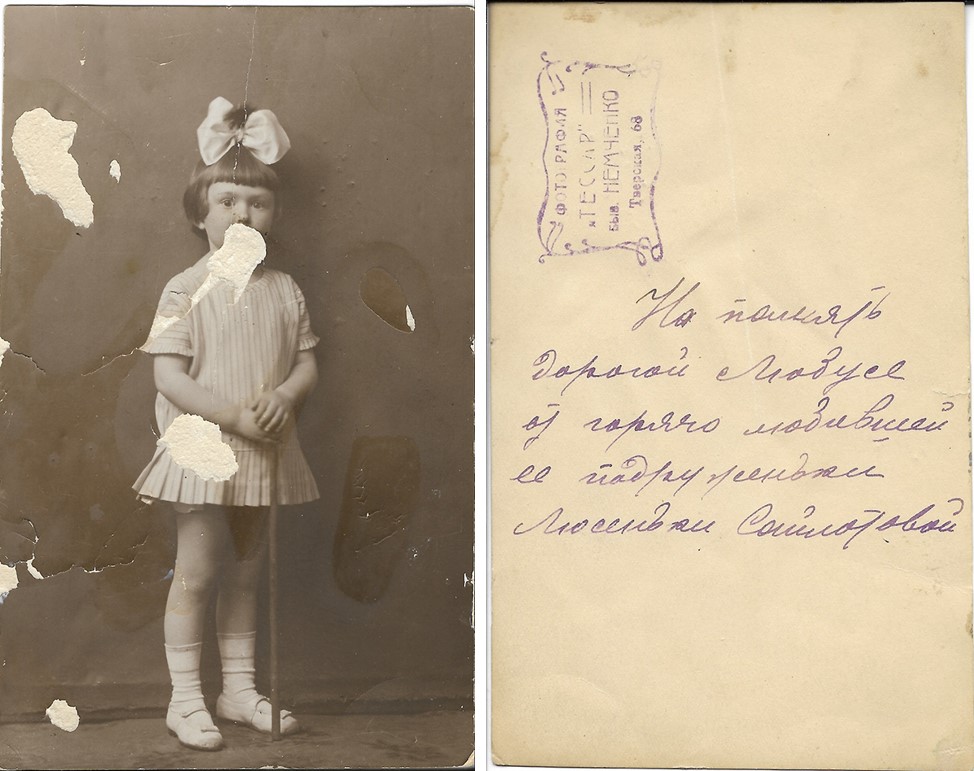 ФОТОГРАФИЯ
„ТЕССАР"
БЫВ. НЕМЧЕНКО
Тверская, 68
На память
дорогой Любусе
от горячо любившей
ее подруженьки
Люсеньки